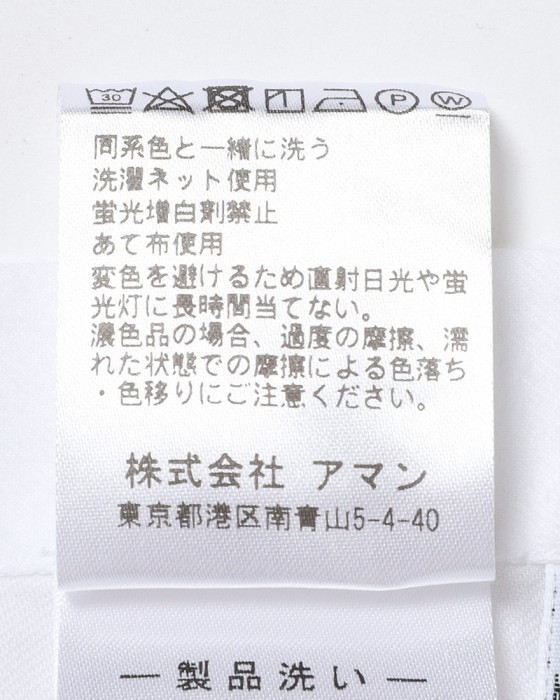 30
P W
同系色と一緒に洗う
洗濯ネット使用
蛍光増白剤禁止
あて布使用
変色を避けるため直射日光や蛍
光灯に長時間当てない。
濃色品の場合、過度の摩擦、濡
れた状態での摩擦による色落ち
・色移りにご注意ください。
株式会社 アマン
東京都港区南青山5-4-40
― 製品洗い ―